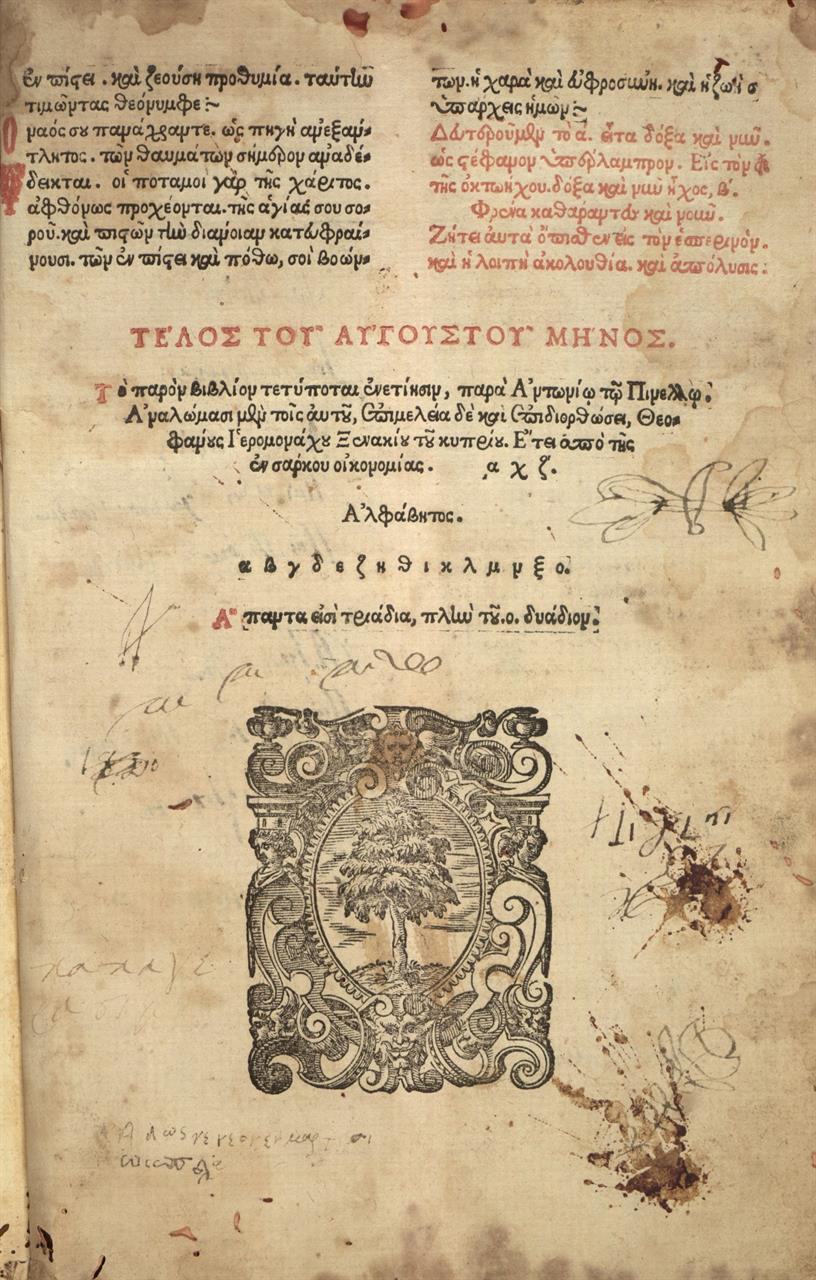 ἐν πίστει. καὶ ζεούσῃ προθυμίᾳ. ταύτην
τιμῶντας θεόνυμφε :~
Ὁ ναός σου πανάχραντε. ὡς πηγὴ ἀνεξάν-
τλητος. τῶν θαυμάτων σήμερον ἀναδέ-
δεικται. οἱ ποταμοὶ γὰρ τῆς χάριτος.
ἀφθόνως προχέονται. τῆς ἁγίας σου σο-
ροῦ. καὶ πιστῶν τὴν διάνοιαν κατευφραί-
νουσι. τῶν ἐν πίστει καὶ πόθῳ, σοὶ βοών-
των. ἡ χαρὰ καὶ εὐφροσύνη. καὶ ἡ ζωὴ σ
ὑπάρχεις ἡμῶν :~
Δευτεροῦμεν τὸ α. εἶτα δόξα καὶ νῦν.
ὡς στέφανον ὑπέρλαμπρον. Εἰς τὸν
τῆς ὀκτωήχου. δόξα καὶ νῦν ἦχος, β.
Φρένα καθαραντὲς καὶ νοῦν.
Ζήτει αὐτὰ ὄπισθεν εἰς τὸν ἑσπερινόν.
καὶ ἡ λοιπὴ ἀκολουθία. καὶ ἀπόλυσις :
ΤΕΛΟΣ ΤΟΥ ΑΥΓΟΥΣΤΟΥ ΜΗΝΟΣ.
Τὸ παρὸν βιβλίον τετύπωται ἐνετίησιν, παρὰ Ἀντωνίῳ τῷ Πινέλλῳ.
Ἀναλώμασι μὲν τοῖς αὐτοῦ, Ἐπιμελείᾳ δὲ καὶ Ἐπιδιορθώσει, Θεο-
φάνους Ἱερομονάχου Ξενακίου τοῦ κυπρίου. Ἔτει ἀπὸ τῆς
ἐν σάρκου οἰκονομίας. α χ ζ.
Ἀλφάβητος.
α β γ δ ε ζ η θ ι κ λ μ ν ξ ο.
Ἅπαντα εἰσὶ τριάδια, πλὴν τοῦ. ο. δυάδιον.